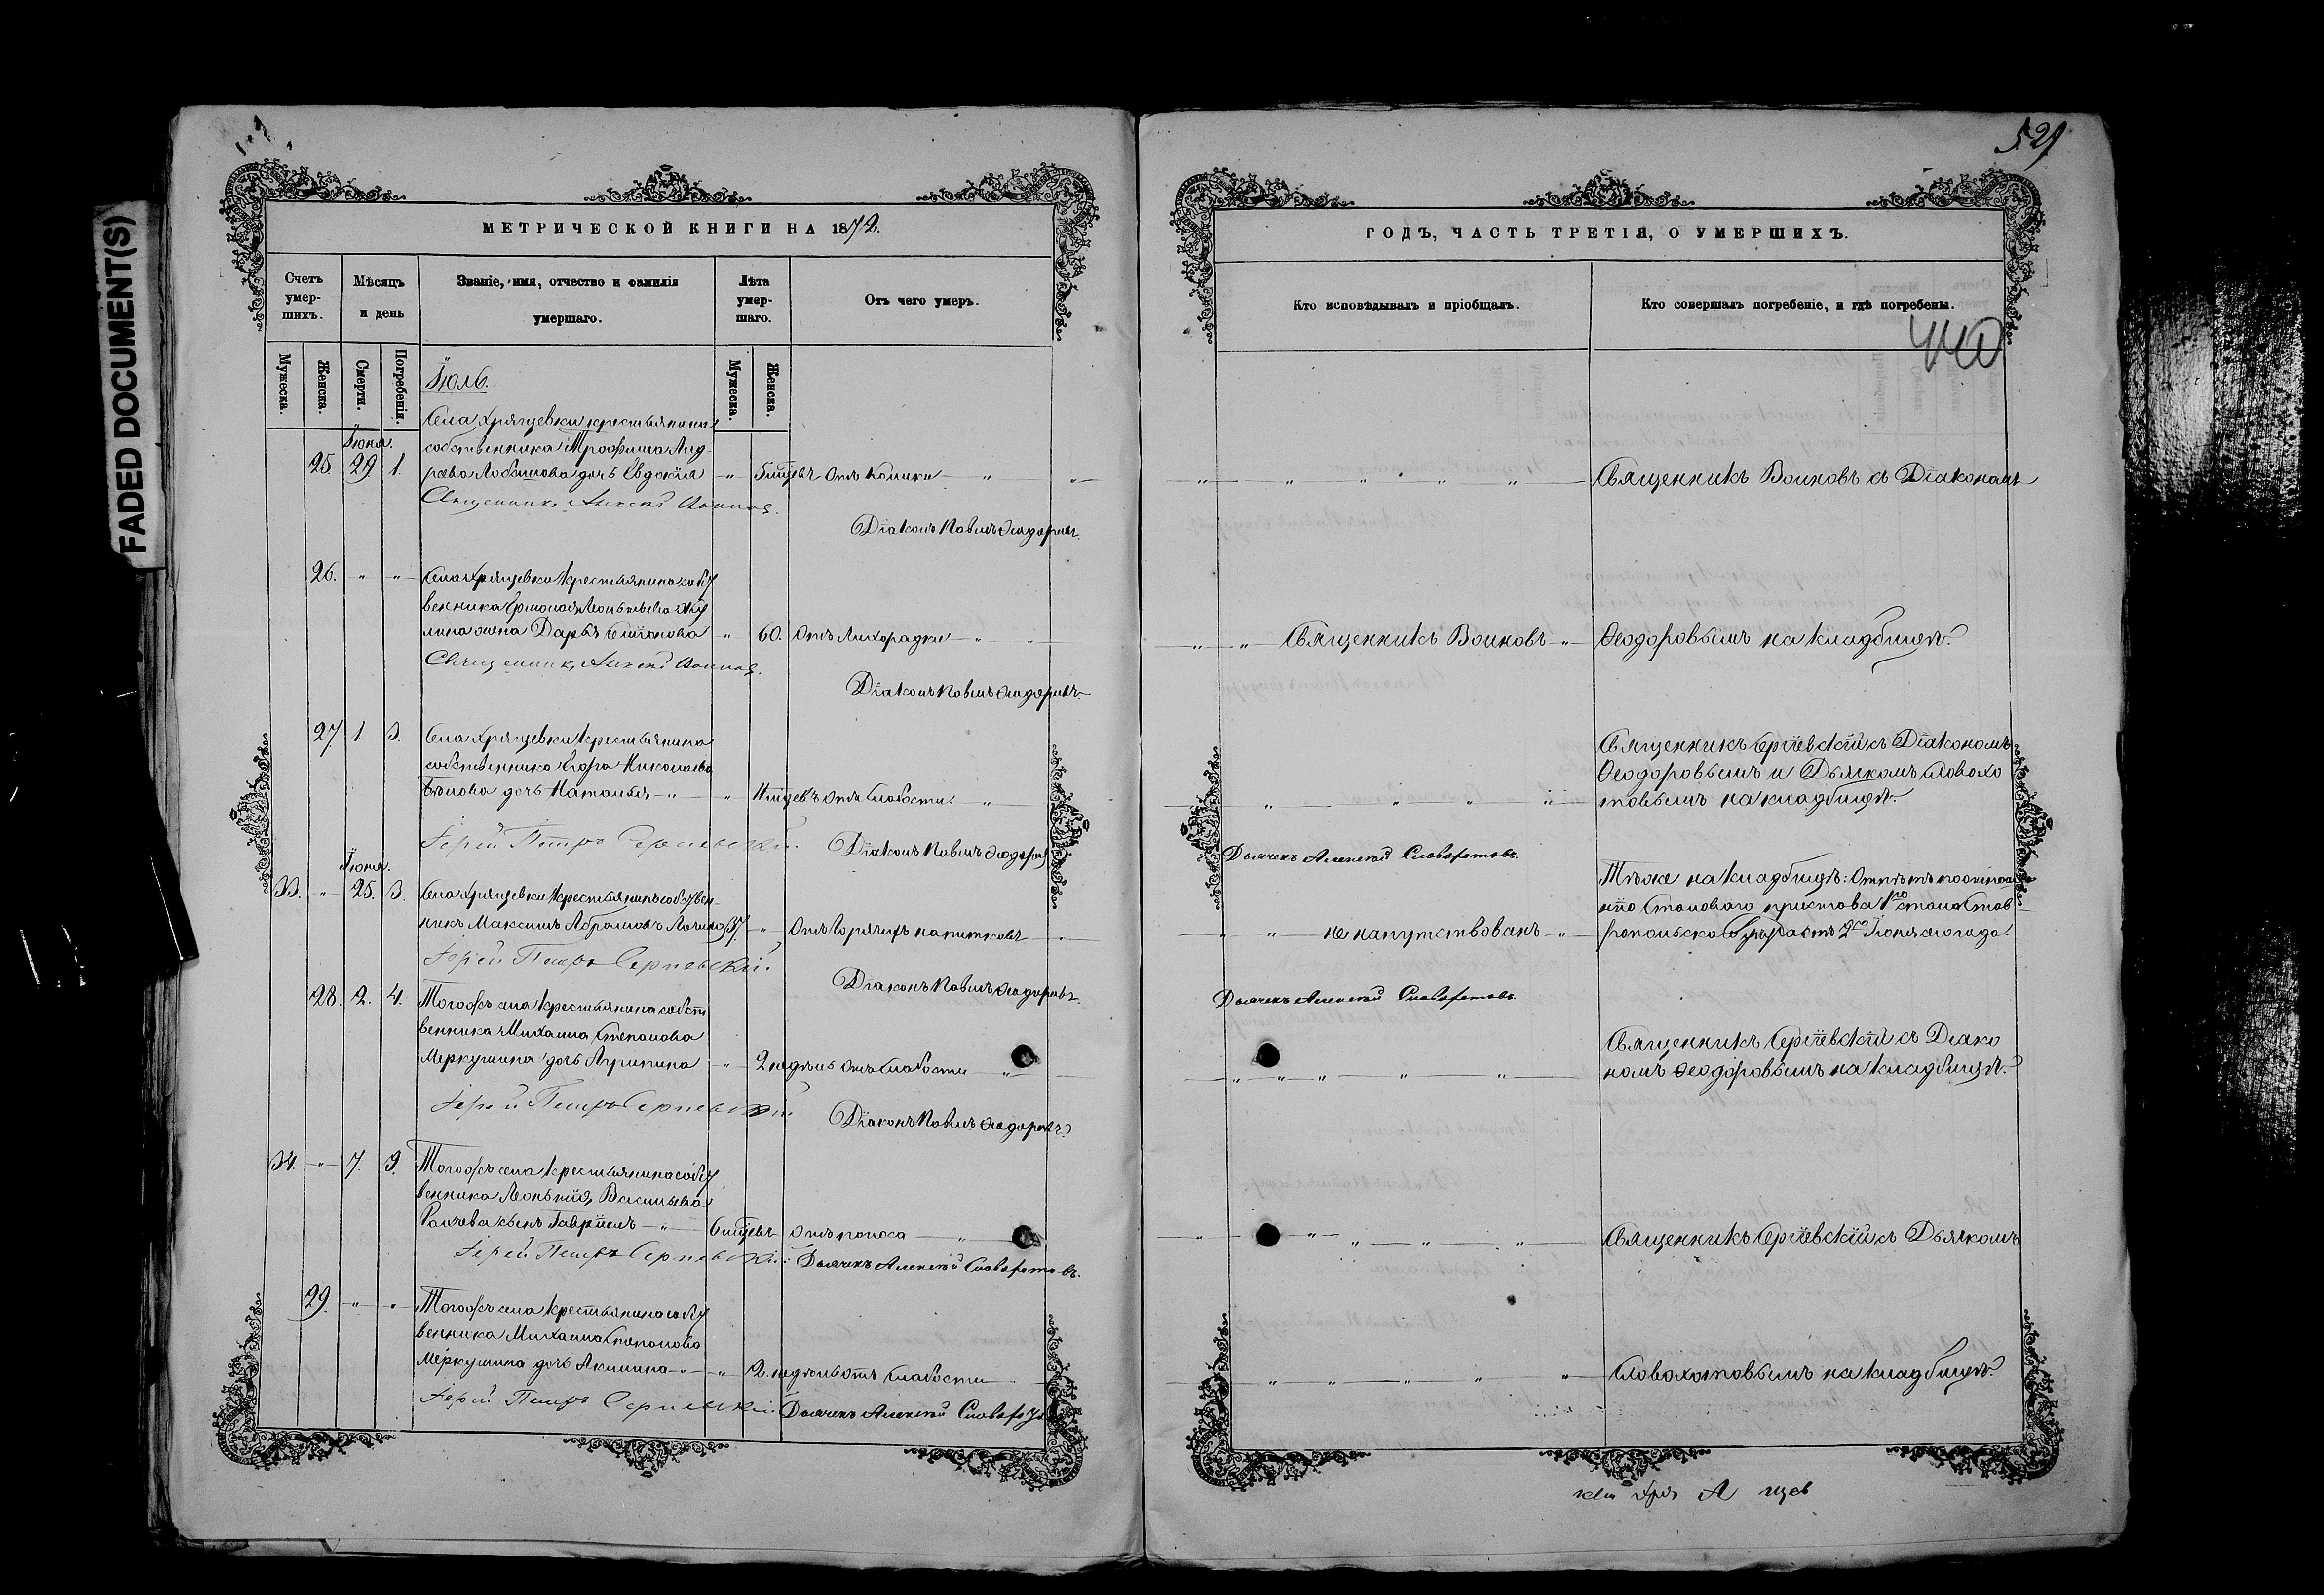 FADED DOCUMENT(S)
МЕТРИЧЕСКОЙ КНИГИ НА 1872.
Счетъ умер-шихъ.
Мѣсяцъ и день
Званіе, имя, отчество и фамилія умершаго.
Лѣта умер-шаго.
Отъ чего умеръ.
Мужеска.
Женска.
Смерти.
Погребенія.
Мужеска.
Женска.
Іюль.
Села Хрящевки крестьянина
Іюня.
собственника Трофима Анд-
25. 29. 1. реева Лобанова дочь Евдокія " 5 мцевъ Отъ колики " "
Священникъ Алексѣй Воиновъ.
Діаконъ Павелъ Ѳеодоровъ.
26. " " Села Хрящевки крестьянина собст
венника Ермолая Леонтьева
жена Дарья " 60. Отъ лихорадки " "
Священникъ Алексѣй Воиновъ.
Діаконъ Павелъ Ѳеодоровъ.
27 1. 3. Села Хрящевки крестьянина
собственника Егора Николаева
Бѣлова дочь Наталья " " мцевъ отъ слабости "
Іерей Петръ Сергіевскій.
Діаконъ Павелъ Ѳеодоровъ
Іюня.
33. " 25. 3. Села Хрящевки крестьянинъ собствен-
никъ Максимъ Абрамовъ 37. " Отъ горячихъ напитковъ "
Іерей Петръ Сергіевскій.
Діаконъ Павелъ Ѳеодоровъ.
28. 2. 4. Тогожъ села крестьянина собст
венника Михаила Степанова
Меркушина дочь Агрипина " 2 недѣль отъ слабости "
Іерей Петръ Сергіевскій
Діаконъ Павелъ Ѳеодоровъ.
34. " 7. 9. Тогожъ села крестьянина собст
венника Леонтія Васильева
сынъ Гавріилъ " 6 мцевъ Отъ поноса "
Іерей Петръ Сергіевскій
Дьячекъ Алексѣй Словохотовъ.
29. " " Тогожъ села крестьянина собст
венника Михаила Степанова
Меркушина дочь Акилина " " 2. недѣль отъ слабости "
Іерей Петръ Сергіевскій
Дьячекъ Алексѣй Словохотовъ
529
ГОДЪ, ЧАСТЬ ТРЕТІЯ, О УМЕРШИХЪ.
Кто исповѣдывалъ и пріобщалъ.
Кто совершалъ погребеніе, и гдѣ погребены.
440
" " " " " " Священникъ Воиновъ съ Діакономъ
" " Священникъ Воиновъ " Ѳеодоровымъ на кладбищѣ.
Священникъ Сергіевскій съ Діакономъ
Ѳеодоровымъ и Дьячкомъ Словохо
" " " " товымъ на кладбищѣ.
Дьячекъ Алексѣй Словохотовъ.
Тѣже на кладбищѣ: Отпѣтъ по отноше
нію Становаго пристава 1го стана Став
" " не напутствованъ " ропольскаго уѣзда отъ Іюня сего года.
Дьячекъ Алексѣй Словохотовъ.
Священникъ Сергіевскій съ Діако
" " " " " номъ Ѳеодоровымъ на кладбищѣ.
" " " " " Священникъ Сергіевскій съ Дьячкомъ
" " " " " Словохотовымъ на кладбищѣ.
села Хря щев